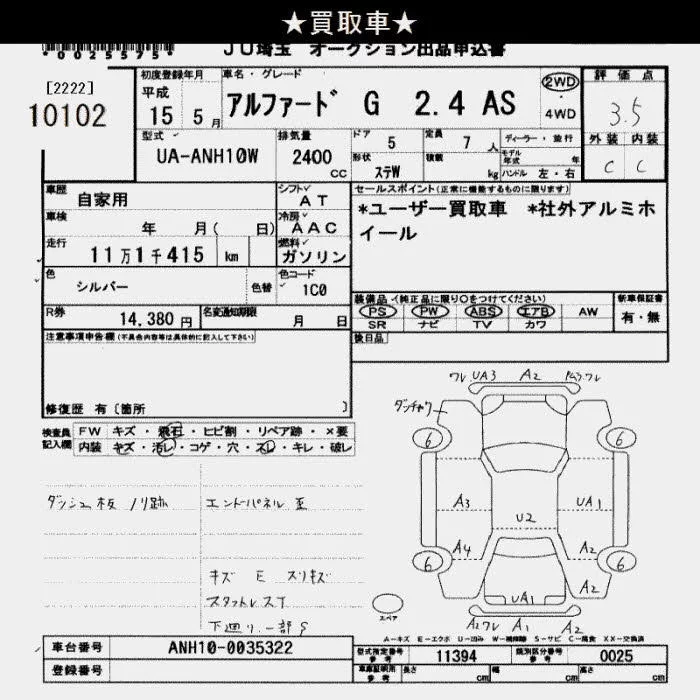 ★買取車★
*0025575* JU埼玉 オークション出品申込書
[2222]
10102
初度登録年月 車名・グレード 評価点
平成 15年 5月
アルファード G 2.4 AS
2WD・4WD
3.5
外装 内装
C C
型式 UA-ANH10W
排気量 2400 CC
ドア 5
定員 7人
形状 ステW
積載 kg
ディーラー・並行
モデル年式 年
ハンドル 左・右
車歴 自家用
シフト AT
車検 年 月( 日)
冷房 AAC
走行 11万1千415 km
燃料 ガソリン
色 シルバー
色替
色コード 1C0
R券 14,380 円
名変通知期限 月 日
セールスポイント(正常に機能するものに限ります)
*ユーザー買取車 *社外アルミホ
イール
装備品・(純正品に限り○をつけてください) 新車保証書
PS PW ABS エアB AW 有・無
SR ナビ TV カワ
後日品
注意事項申告欄(不具合内容等は具体的に記入して下さい)
修復歴 有〔箇所 〕
検査員記入欄
FW キズ・飛石・ヒビ割・リペア跡・×要
内装 キズ・汚レ・コゲ・穴・スレ・キレ・破レ
ダッシュ板 ノリ跡
エンドパネル 歪
キズ E スリキズ
スタットレスT
下廻り.一部S
ワレ UA3 A2
ダンチャク
6 6
A3 U2 UA1
A4 A2
6 6
UA1 A2
A2ワレ A1 A2
スペア
A-キズ E-エクボ U-凹み W-補修跡 S-サビ C-腐食 XX-交換済
車台番号 ANH10-0035322
登録番号
型式指定番号 参考 11394
類別区分番号 参考 0025
車庫証明用 参考 長さ cm 幅 cm 高さ cm